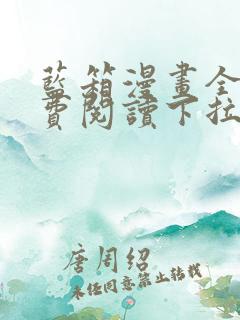 藍箱漫畫全
費閱讀下拉
唐周紹
未经同意禁止转载